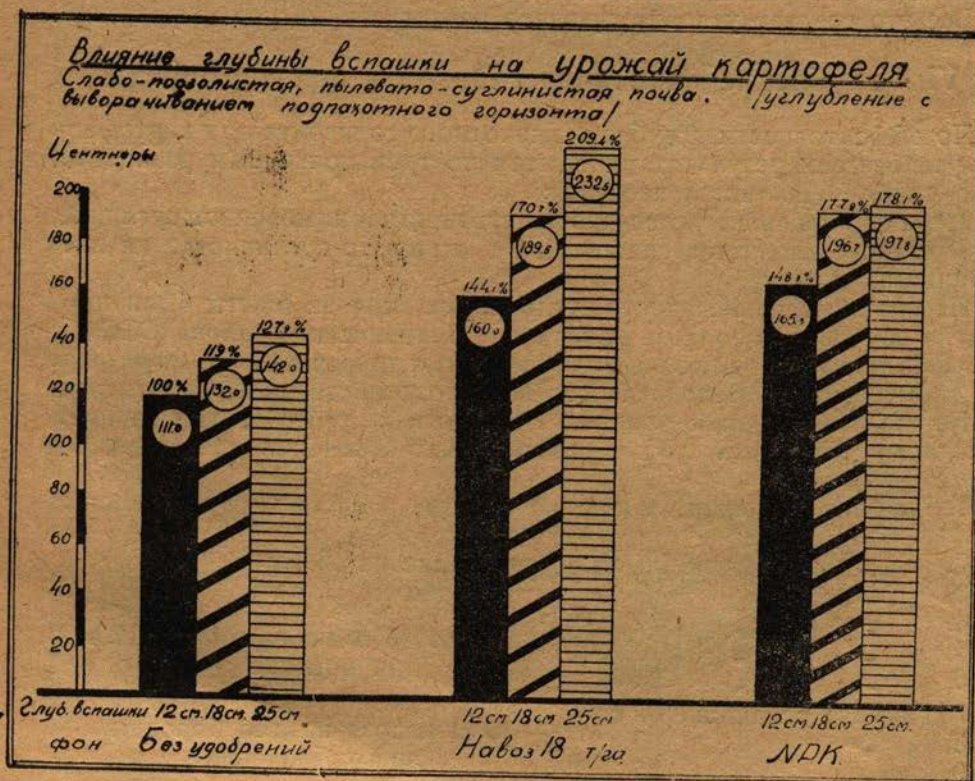 Влияние глубины вспашки на урожай картофеля
Слабо-подзолистая, пылевато-суглинистая почва. /углубление с
выворачиванием подпахотного горизонта/
Центнеры
200
180
160
140
120
100
80
60
40
20
100%
111.0
119%
132.0
127.9%
142.0
144.1%
160.0
170.7%
189.5
209.4%
232.5
148.8%
165.1
177.2%
196.7
178.1%
197.8
Глуб. вспашки 12 см. 18 см. 25 см.
12 см 18 см 25 см
12 см 18 см 25 см.
фон Без удобрений
Навоз 18 т/га
NPK.